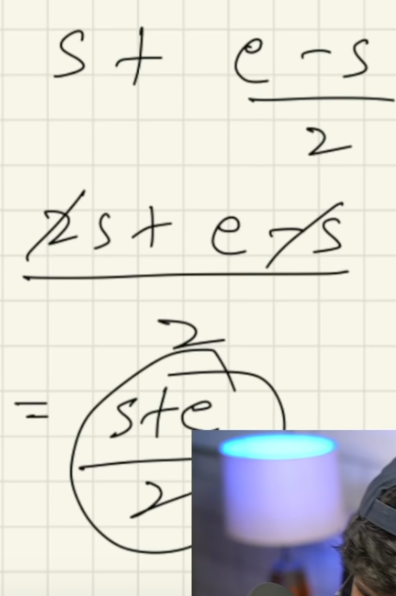 s + e - s
2
2s + e - s
2
= s+e
2